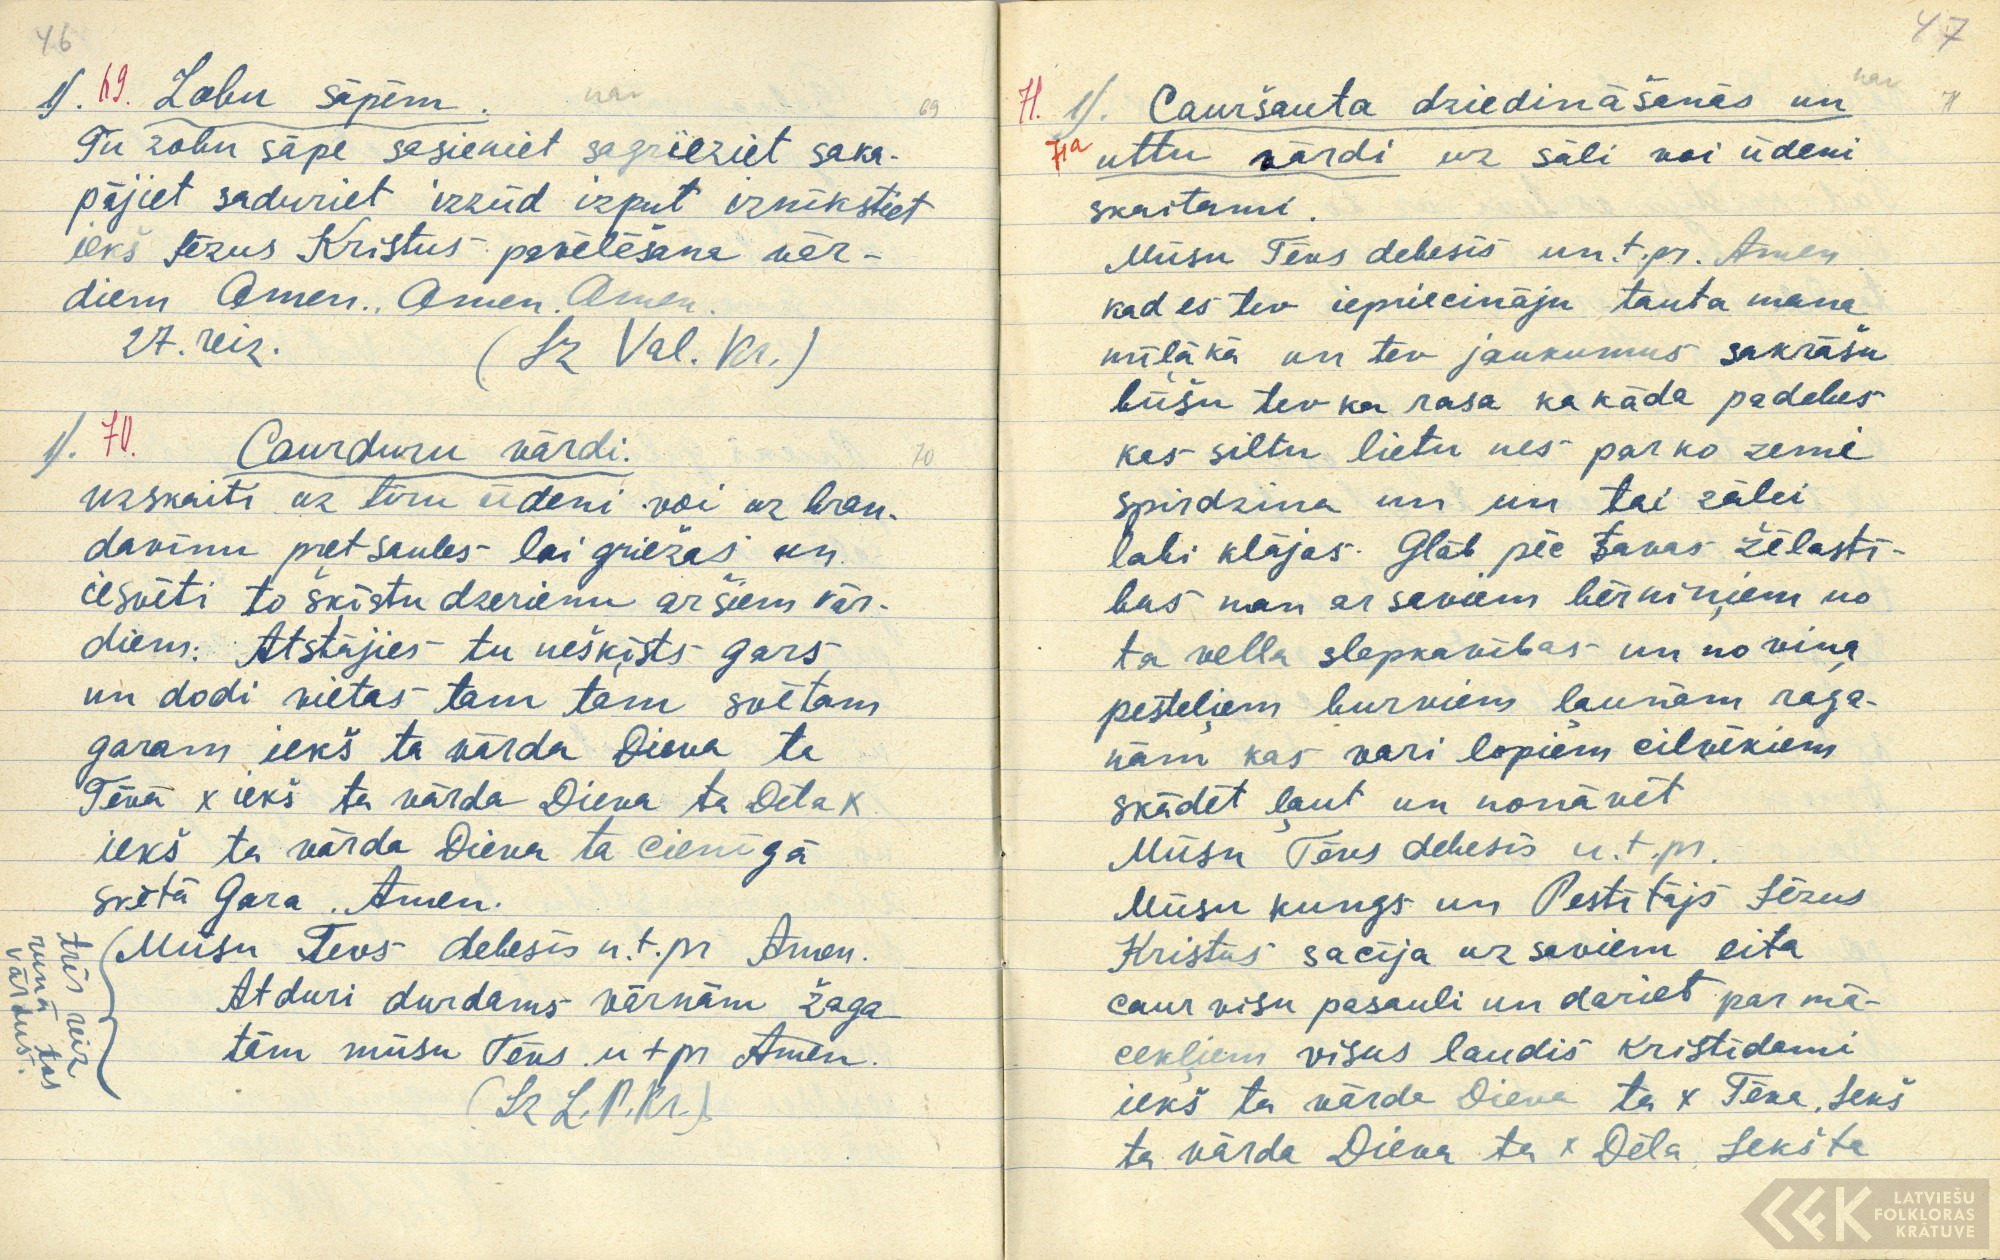 46
1). 69. Zobu sāpēm. nav 69
Tu zobu sāpe sasieniet sagrīeziet saka-
pājiet saduriet izzūd izput iznīkstiet
iekš Jēzus Kristus pavēlēšana vār-
diem Amen.. Amen. Amen.
27. reiz. (Iz Val. Kr.)
1). 70. Caurduru vārdi. 70
uzskaiti uz tīru ūdeni voi uz bran-
davīnu pretsaules lai griežas un
iesvēti to šķīstu dzerienu ar šiem vār-
diem: Atstājies tu nešķīsts gars
un dodi vietas tam tam svētam
garam iekš ta vārda Dieva ta
Tēva x iekš ta vārda Dieva ta Dēla x
iekš ta vārda Dieva ta cienīgā
svētā Gara. Amen.
(Mūsu Tevs debesīs u.t.pr Amen.
Atduri durdams vārnām žaga-
tām mūsu Tēvs u t pr Amen.
(Iz L.P.Kr.)
trīs reiz
runā tos
vārdus.
47
71. 1). Cauršauta dziedināšanās un nav 71
71a uttu vārdi uz sāli voi ūdeni
skaitami.
Mūsu Tēvs debesīs un.t.pr. Amen
kad es tev iepriecināju tauta mana
mīļākā un tev jaukumus sakrāšu
būšu tev ka rasa ka kāda padebes
kas siltu lietu nes par ko zemi
spirdzina un un tai zālei
labi klājas. Glāb pēc tavas žēlastī-
bas man ar saviem bērniņiem no
ta vella slepkavības un no viņa
pesteļiem burviem ļaunām raga-
nām kas vari lopiem cilvēkiem
skādēt ļaut un nonāvēt
Mūsu Tēvs debesīs u.t.pr.
Mūsu kungs un Pestītājs Jēzus
Kristus sacīja uz saviem eita
caur visu pasauli un dariet par mā-
cekļiem visus laudis kristīdami
iekš ta vārda Dieva ta x Tēva. Iekš
ta vārda Dieva ta x Dēla. Iekš ta
LATVIEŠU
FOLKLORAS
KRĀTUVE